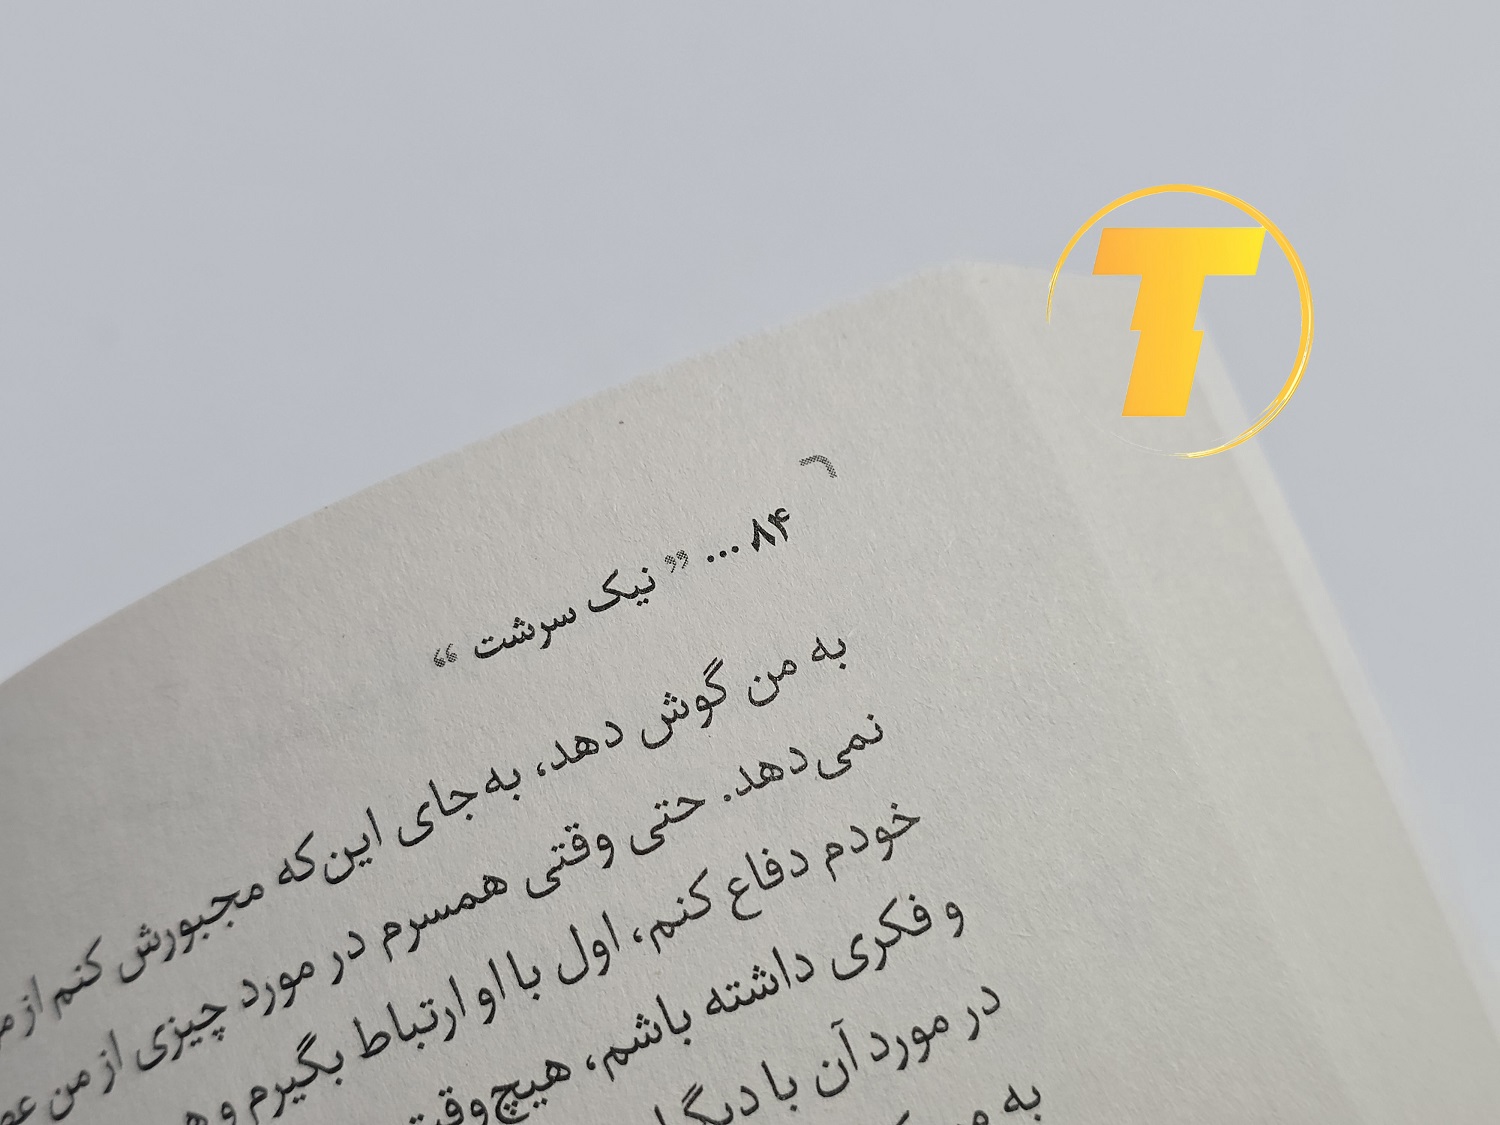 ۸۴ ... ” نیک سرشت “
به من گوش دهد، به‌جای این‌که مجبورش کنم از
نمی‌دهد. حتی وقتی همسرم در مورد چیزی از من
خودم دفاع کنم، اول با او ارتباط بگیرم و
و فکری داشته باشم، هیچ‌وقت
در مورد آن با
به
T